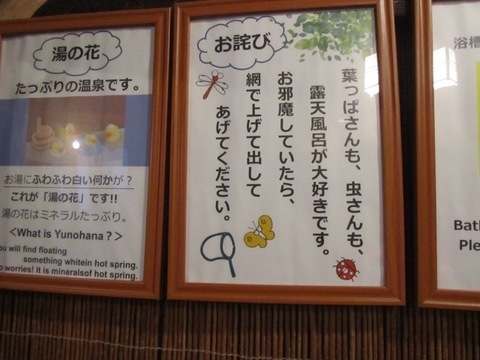 湯の花
たっぷりの温泉です。
お湯にふわふわ白い何かが？
これが「湯の花」です!!
湯の花はミネラルたっぷり。
<What is Yunohana？>
ou will find floating
something whitein hot spring.
o worries! It is mineralsof hot spring.
お詫び
葉っぱさんも、虫さんも、
露天風呂が大好きです。
お邪魔していたら、
網で上げて出して
あげてください。
浴槽
Bath
Ple